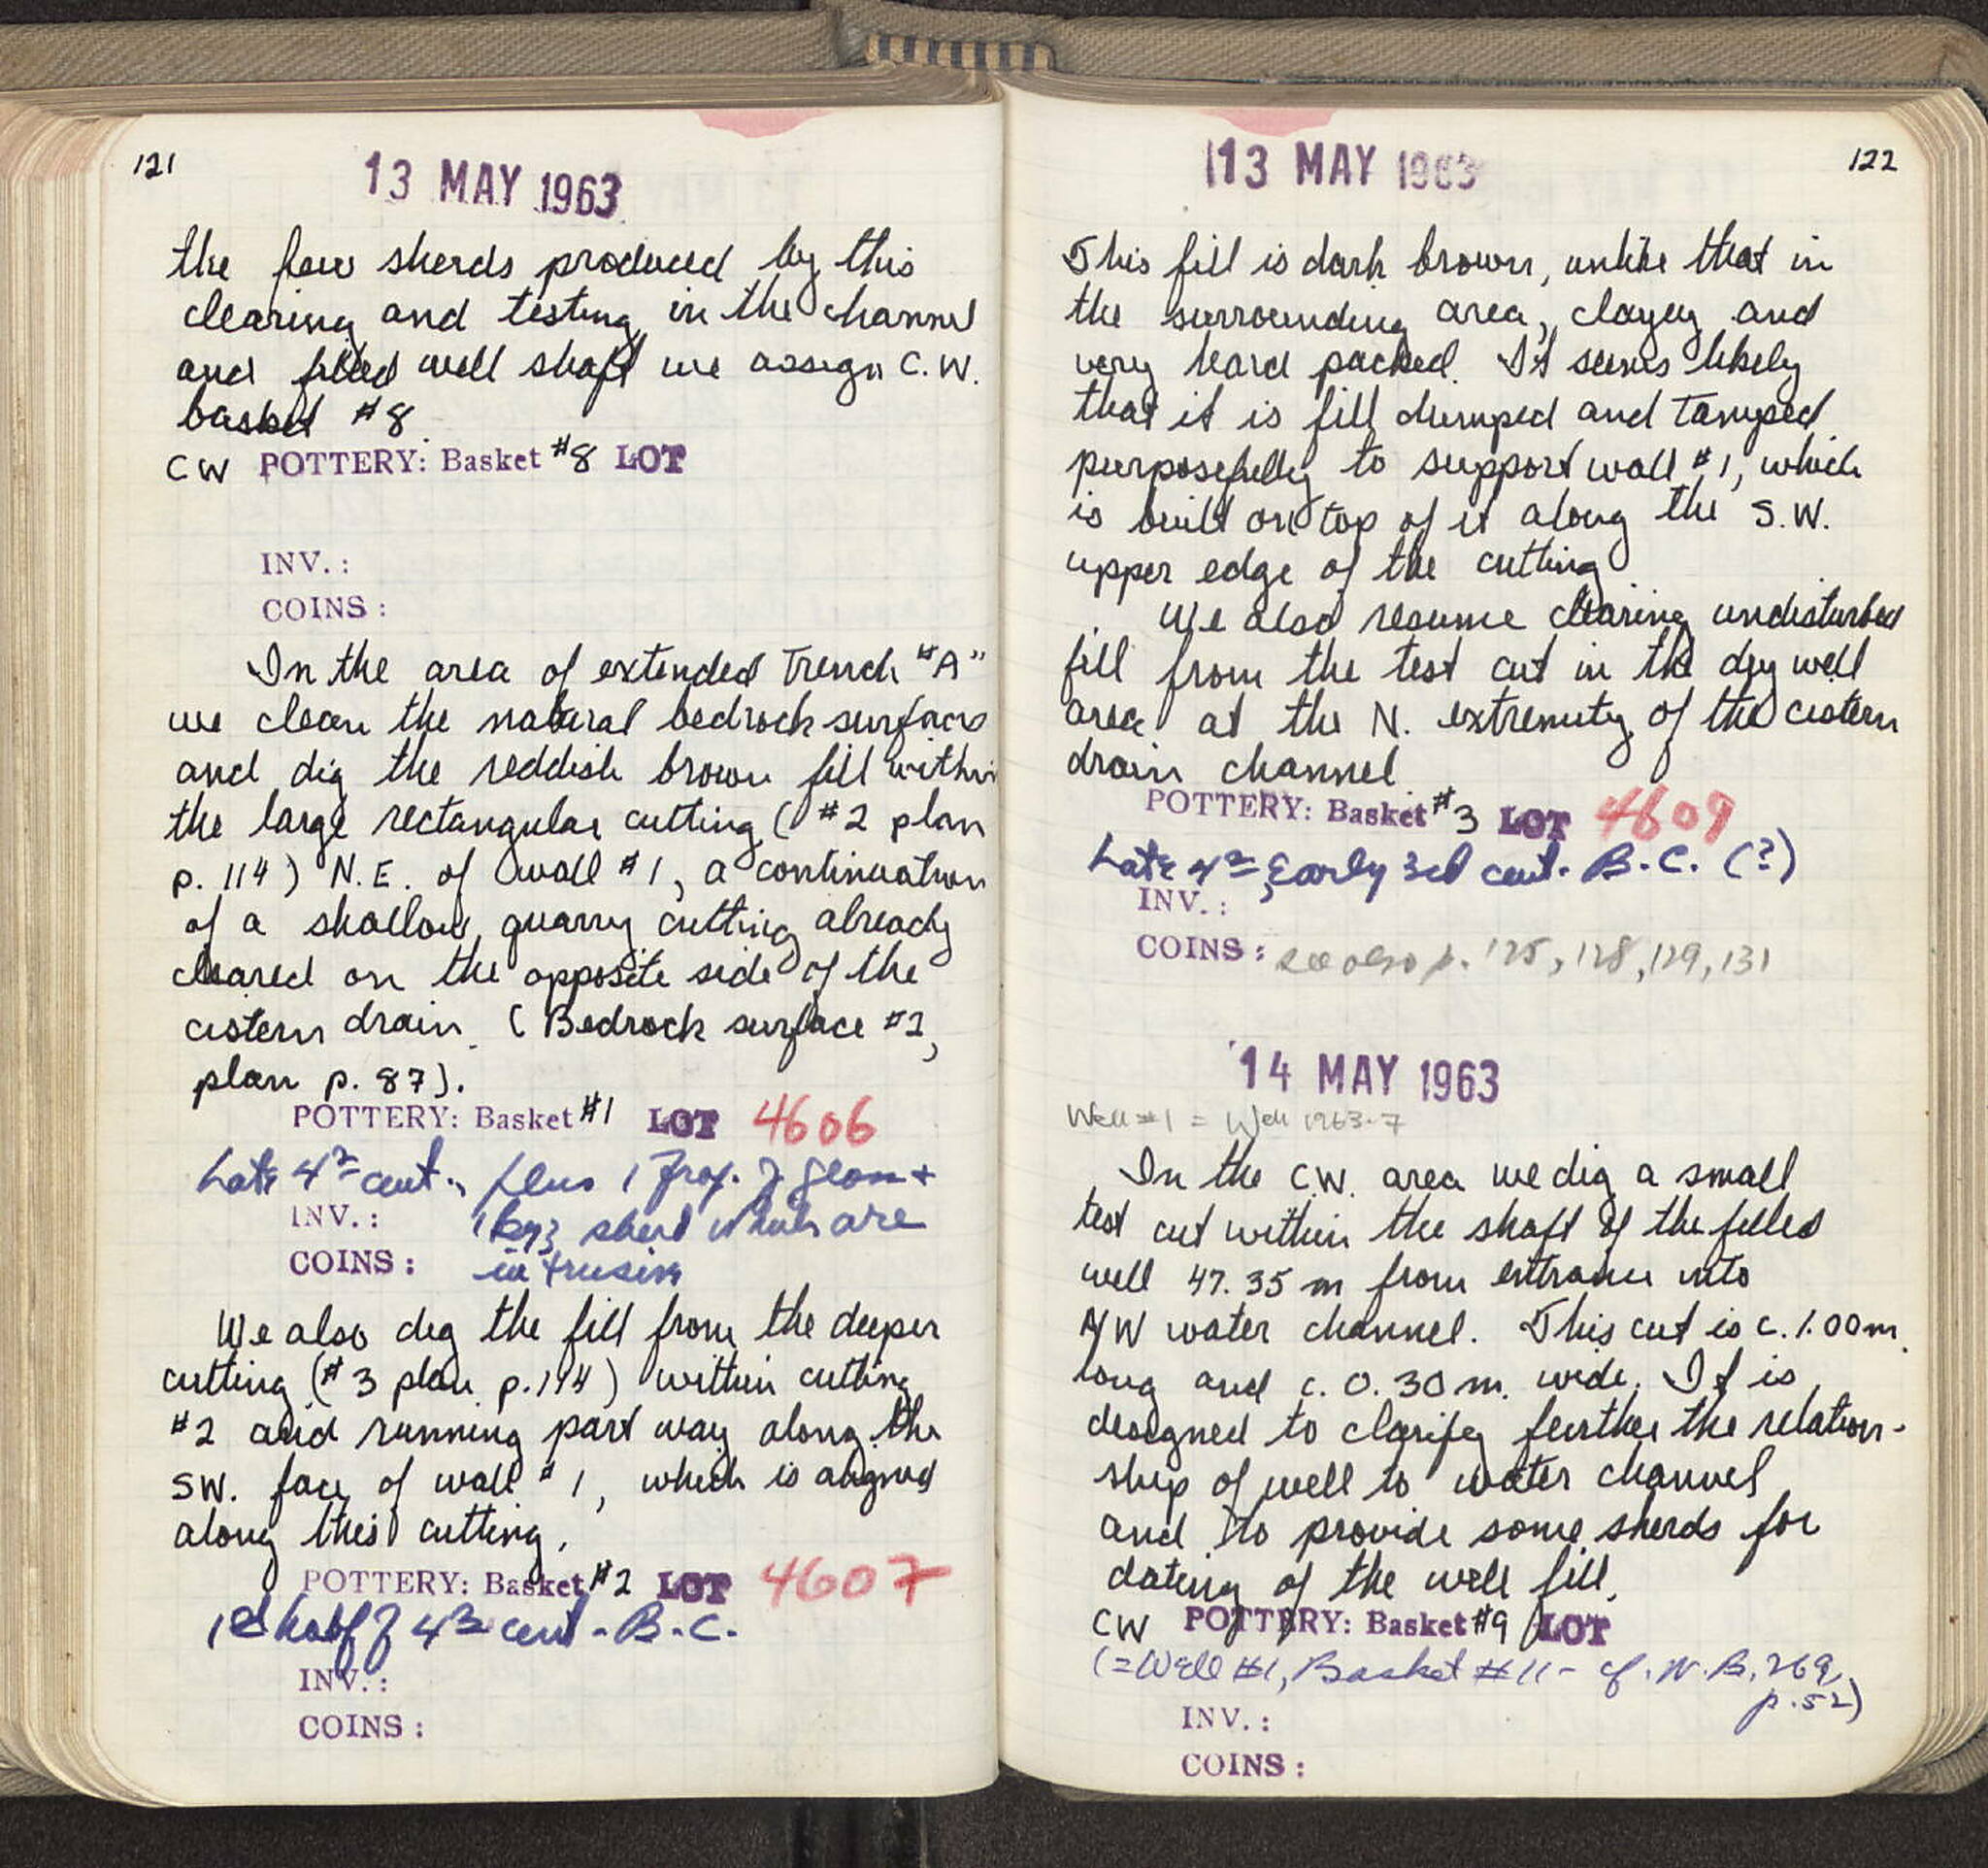 121
13 MAY 1963
the few sherds produced by this
clearing and testing in the channel
and filled well shaft we assign C.W.
basket #8.
CW POTTERY: Basket #8 LOT
INV. :
COINS :
In the area of extended Trench "A"
we clean the natural bedrock surfaces
and dig the reddish brown fill within
the large rectangular cutting (#2 plan
p. 114) N.E. of wall #1, a continuation
of a shallow quarry cutting already
cleared on the opposite side of the
cistern drain. (Bedrock surface #2,
plan p. 87).
POTTERY: Basket #1 LOT 4606
Late 4th cent., plus 1 frag. of glass +
1 byz sherd which are
INV. :
COINS : intrusive
We also dig the fill from the deeper
cutting (#3 plan p. 114) within cutting
#2 and running part way along the
SW. face of wall #1, which is aligned
along this cutting.
POTTERY: Basket #2 LOT 4607
1st half of 4th cent. B.C.
INV. :
COINS :
13 MAY 1963
122
This fill is dark brown, unlike that in
the surrounding area, clayey and
very hard packed. It seems likely
that it is fill dumped and tamped
purposefully to support wall #1, which
is built on top of it along the S.W.
upper edge of the cutting
We also resume clearing undisturbed
fill from the test cut in the dry well
area at the N. extremity of the cistern
drain channel.
POTTERY: Basket #3 LOT 4609
Late 4th, Early 3rd cent. B.C. (?)
INV. :
COINS : see also p. 125, 128, 129, 131
14 MAY 1963
Well #1 = Well 1963-7
In the C.W. area we dig a small
test cut within the shaft of the filled
well 47.35 m from entrance into
N/W water channel. This cut is c. 1.00m.
long and c. 0.30 m. wide. It is
designed to clarify further the relation-
ship of well to water channel
and to provide some sherds for
dating of the well fill.
CW POTTERY: Basket #9 LOT
(=Well #1, Basket #11 - cf. N.B. 269,
p. 52)
INV. :
COINS :